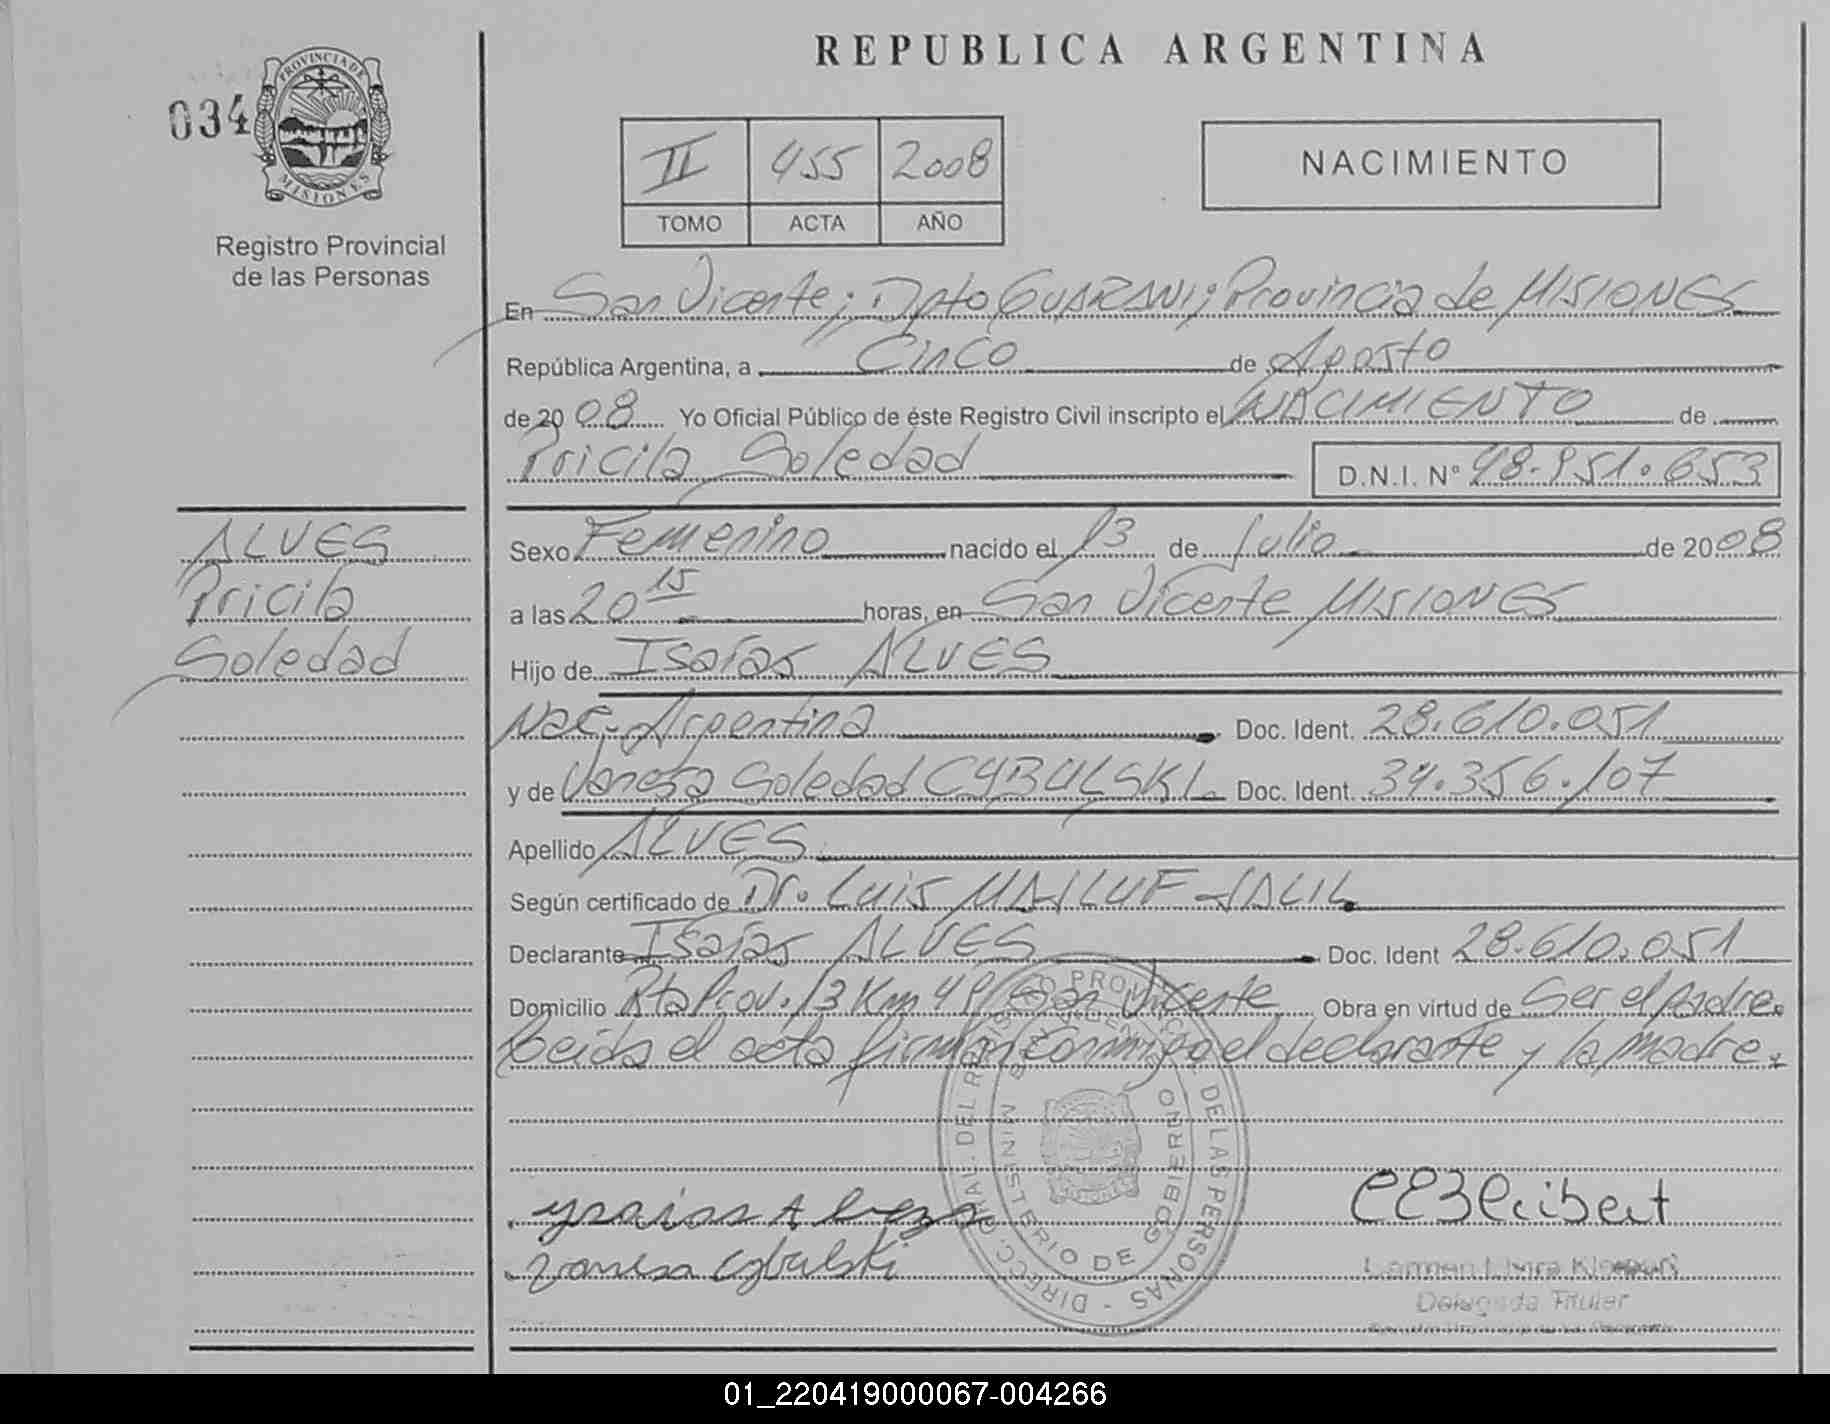 REPUBLICA ARGENTINA
034
PROVINCIA DE
MISIONES
Registro Provincial
de las Personas
II 455 2008
TOMO ACTA AÑO
NACIMIENTO
En San Vicente; Dpto GUARANI; Provincia de MISIONES
República Argentina, a Cinco de Agosto
de 2008 Yo Oficial Público de éste Registro Civil inscripto el NACIMIENTO de
Pricila Soledad D.N.I. N° 48.951.653
ALVES
Pricila
Soledad
Sexo Femenino nacido el 13 de Julio de 2008
a las 20 15 horas, en San Vicente MISIONES
Hijo de Isaías ALVES
Nac. Argentina Doc. Ident. 28.610.051
y de Vanesa Soledad CYBULSKI Doc. Ident. 34.356.107
Apellido ALVES
Según certificado de Dr. Luis MAILUF JALIL
Declarante Isaías ALVES Doc. Ident 28.610.051
Domicilio Rta Prov. 13 Km 49 San Vicente Obra en virtud de Ser el padre.
Leida el acta firman conmigo el declarante y la madre.
DIRECC. GRAL. DEL REGISTRO PROVINCIAL DE LAS PERSONAS
MINISTERIO DE GOBIERNO
vanesa cybulski
Carmen Elvira
Delegada Titular
01_220419000067-004266